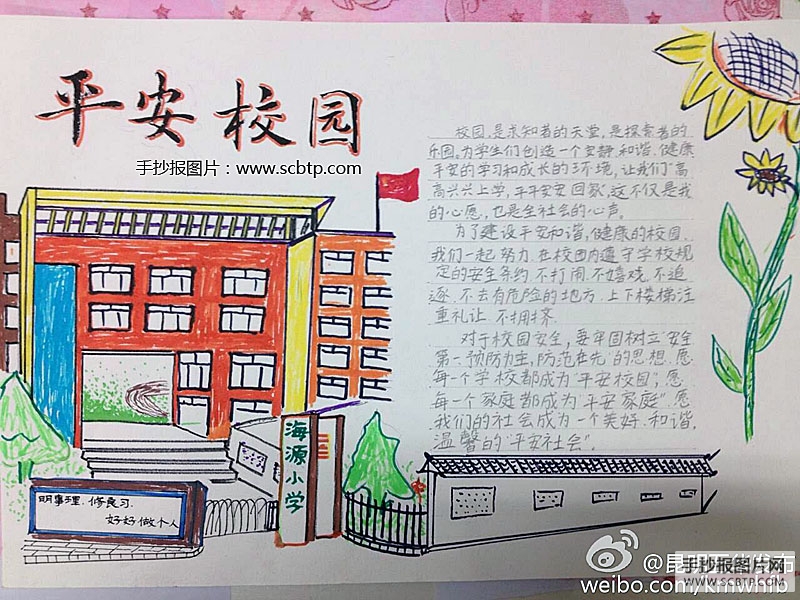 平安校园
手抄报图片：www.scbtp.com
校园,是求知者的天堂,是探索者的
乐园。为学生们创造一个安静,和谐,健康
平安的学习和成长的环境,让我们"高
高兴兴上学,平平安安回家"这不仅是我
的心愿,也是全社会的心声。
为了建设平安和谐,健康的校园,
我们一起努力,在校园内遵守学校规
定的安全条约,不打闹,不嬉戏,不追
逐,不去有危险的地方,上下楼梯注
重礼让,不拥挤.
对于校园安全,要牢固树立"安全
第一,预防为主,防范在先"的思想.愿
每一个学校都成为"平安校园",愿
每一个家庭都成为"平安家庭",愿
我们的社会成为一个美好,和谐,
温馨的"平安社会".
海源小学
明事理、修良习、
好好做个人
@昆明五华发布
weibo.com/kmwhfb
手抄报图片网
WWW.SCBTP.COM